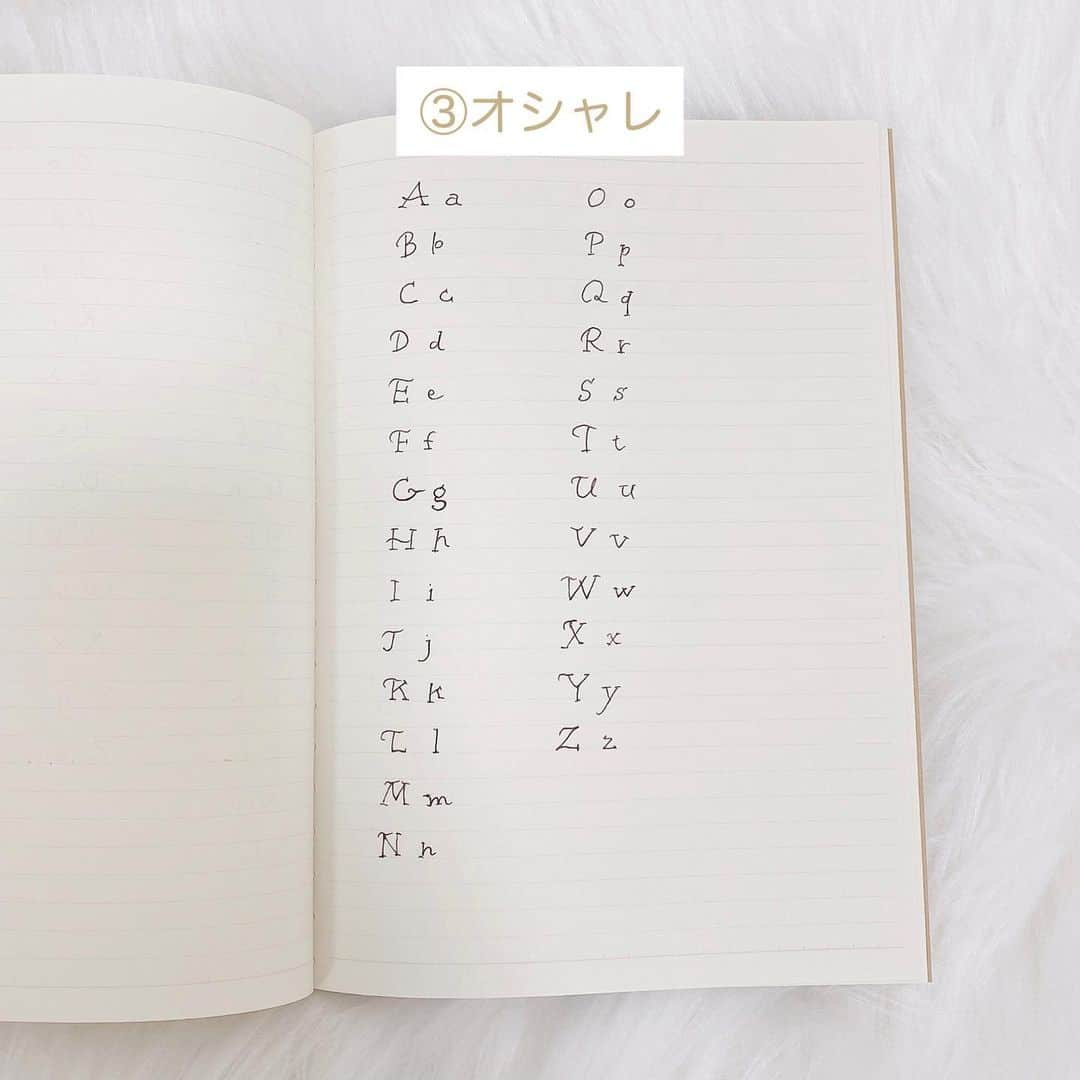 ③オシャレ
A a
B b
C c
D d
E e
F f
G g
H h
I i
J j
K k
L l
M m
N n
O o
P p
Q q
R r
S s
T t
U u
V v
W w
X x
Y y
Z z